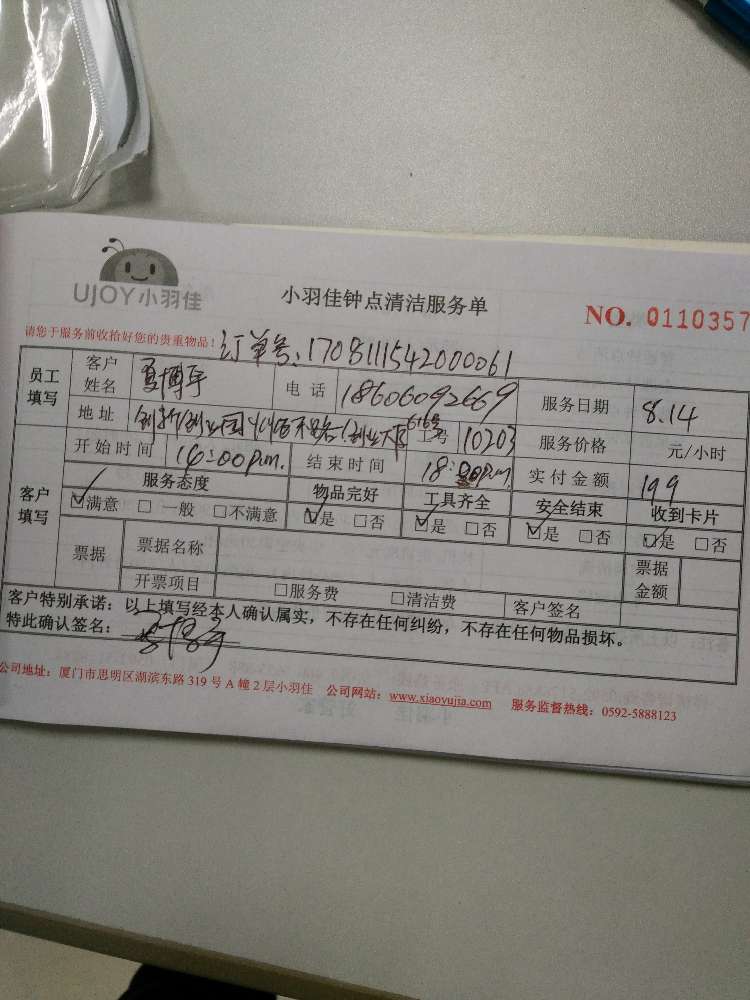 UJOY小羽佳
小羽佳钟点清洁服务单
NO. 0110357
请您于服务前收拾好您的贵重物品! 订单号:1708111542000061
员工填写 客户姓名 夏博宇 电话 18606092669 服务日期 8.14
地址 创新创业园 616号 工号 10203 服务价格 元/小时
客户填写 开始时间 14:00p.m. 结束时间 18:00p.m. 实付金额 199
服务态度 物品完好 工具齐全 安全结束 收到卡片
☑满意 □一般 □不满意 ☑是 □否 ☑是 □否 ☑是 □否 ☑是 □否
票据 票据名称 票据金额
开票项目 □服务费 □清洁费 客户签名
客户特别承诺:以上填写经本人确认属实,不存在任何纠纷,不存在任何物品损坏。
特此确认签名:
公司地址:厦门市思明区湖滨东路 319 号 A 幢 2 层小羽佳 公司网站:www.xiaoyujia.com 服务监督热线:0592-5888123